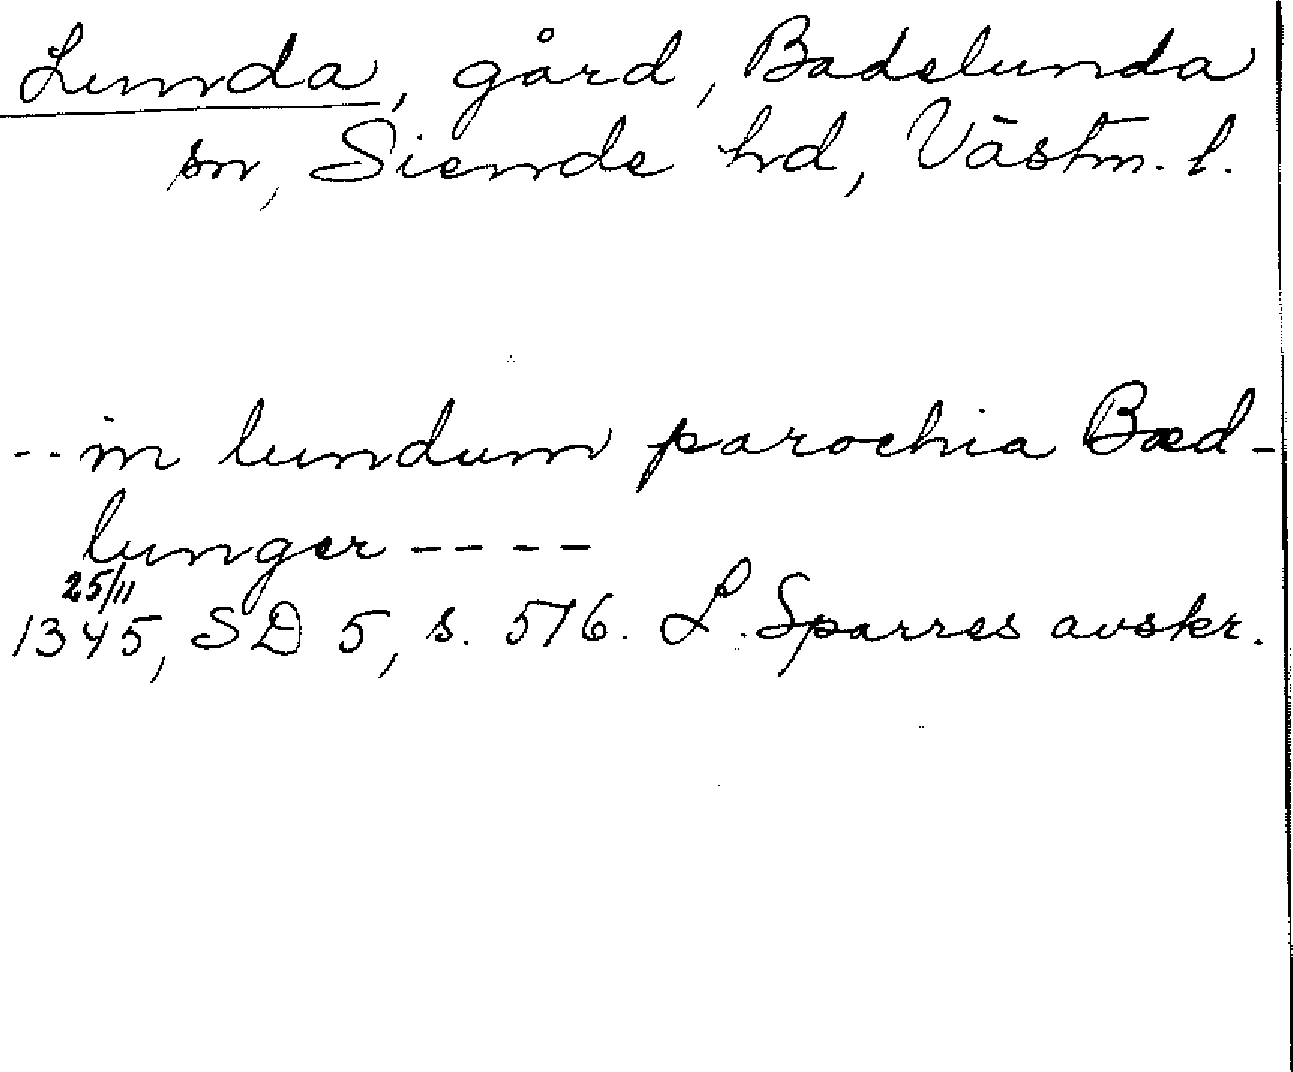 Lunda, gård, Badelunda
sn, Siende hd, Västm. l.
-- in lundum parochia Bæd-
lunger ----
25/11
1345, SD 5, s. 516. L. Sparres avskr.